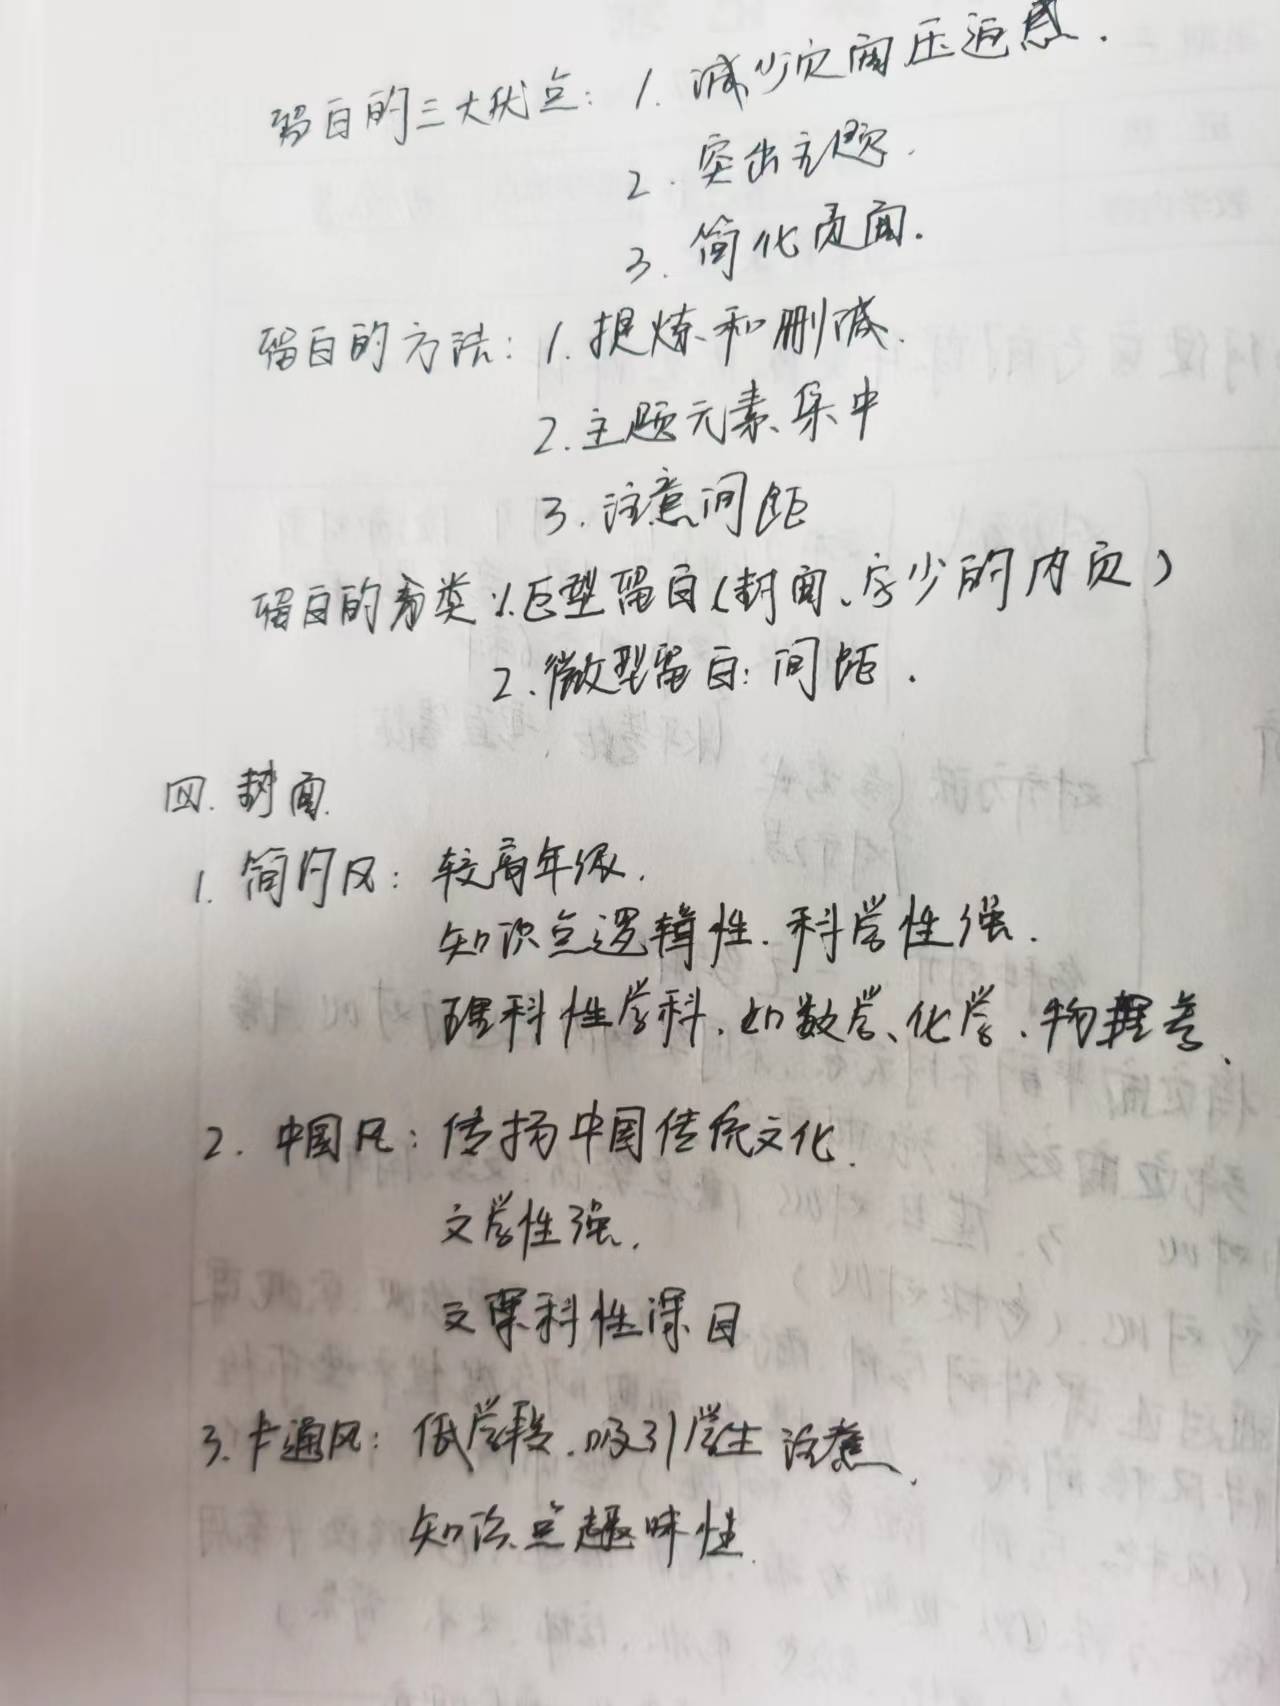 留白的三大优点：1. 减少页面压迫感.
2. 突出主题.
3. 简化页面.
留白的方法：1. 提炼和删减.
2. 主题元素集中
3. 注意间距
留白的种类 1. 巨型留白（封面、字少的内页）
2. 微型留白：间距.
四. 封面.
1. 简约风：较高年级.
知识点逻辑性. 科学性强.
理科性学科. 如数学、化学、物理等.
2. 中国风：传扬中国传统文化.
文学性强.
文科性课目
3. 卡通风：低学段. 吸引学生注意.
知识点趣味性.